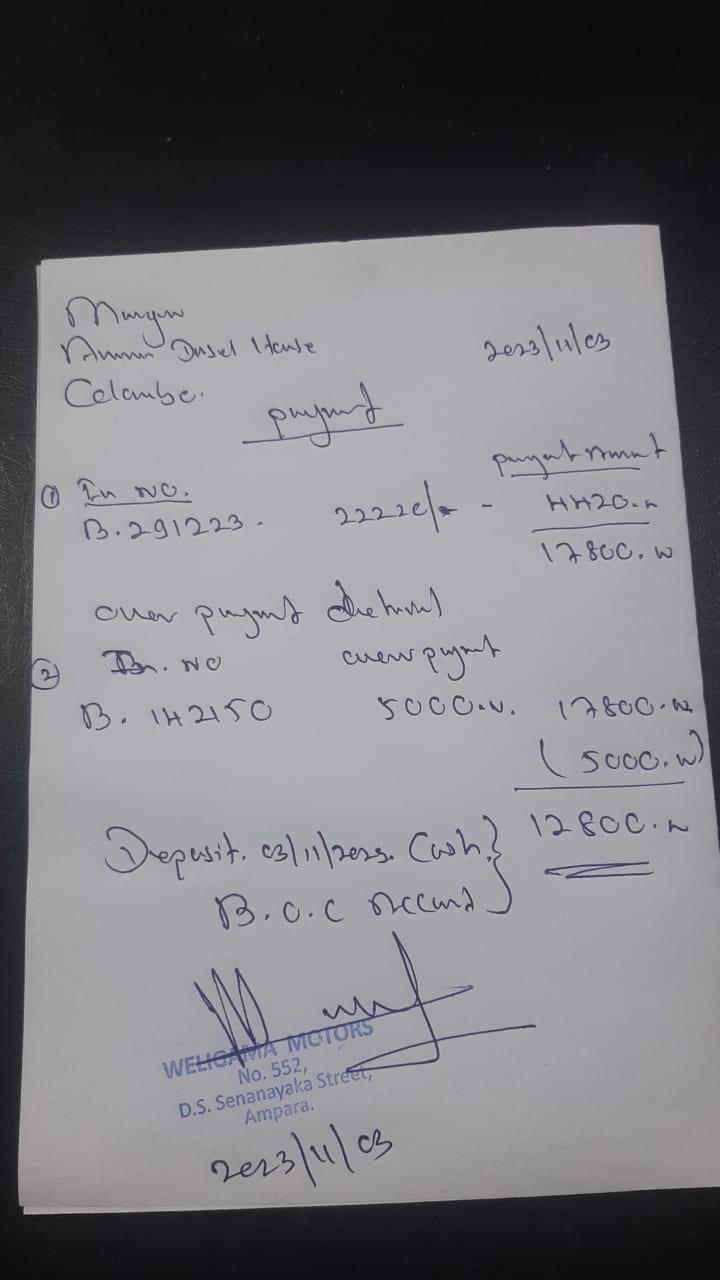 Manager
Diesel House 2023/11/03
Colombo.
payment
payment Amount
① In NO.
B.291223. 22220/- - 4420.00
17800.00
over payment
② In. NO over payment
B. 142150 5000.00. 17800.00
(5000.00)
Deposit. 03/11/2023. Cash. } 12800.00
B.O.C Account
WELIGAMA MOTORS
No. 552,
D.S. Senanayaka Street,
Ampara.
2023/11/03